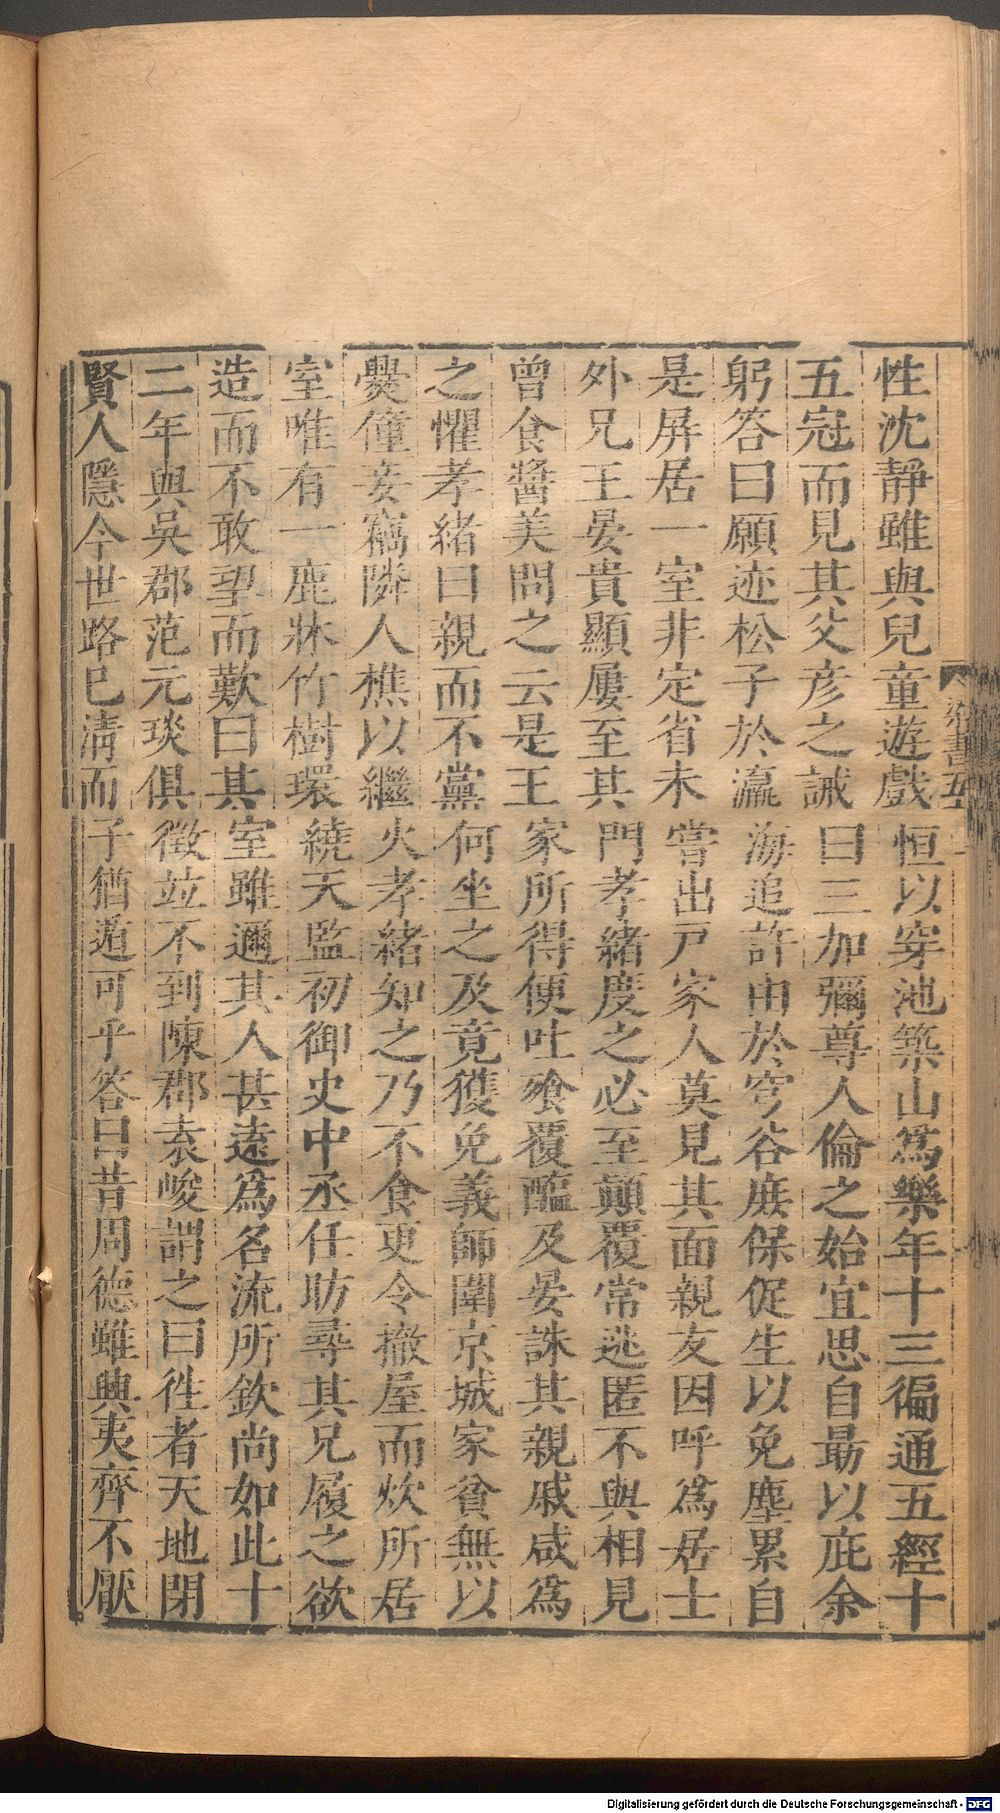 性沈靜雖與兒童遊戲恒以穿池築山爲樂年十三徧通五經十
五冠而見其父彦之誡曰三加彌尊人倫之始宜思自勗以庇余
躬答曰願迹松子於瀛海追許由於穹谷庶保促生以免塵累自
是屏居一室非定省未嘗出戸家人莫見其面親友因呼爲居士
外兄王晏貴顯屢至其門孝緒度之必至顛覆常逃匿不與相見
曾食醬美問之云是王家所得便吐飱覆醢及晏誅其親戚咸爲
之懼孝緒曰親而不黨何坐之及竟獲免義師圍京城家貧無以
爨僮妾竊隣人樵以繼火孝緒知之乃不食更令撤屋而炊所居
室唯有一鹿牀竹樹環繞天監初御史中丞任昉尋其兄履之欲
造而不敢望而歎曰其室雖邇其人甚遠爲名流所欽尚如此十
二年與吳郡范元琰俱徵竝不到陳郡袁峻謂之曰徃者天地閉
賢人隱今世路已清而子猶遁可乎答曰昔周德雖興夷齊不厭
梁書五十一
Digitalisierung gefördert durch die Deutsche Forschungsgemeinschaft - DFG